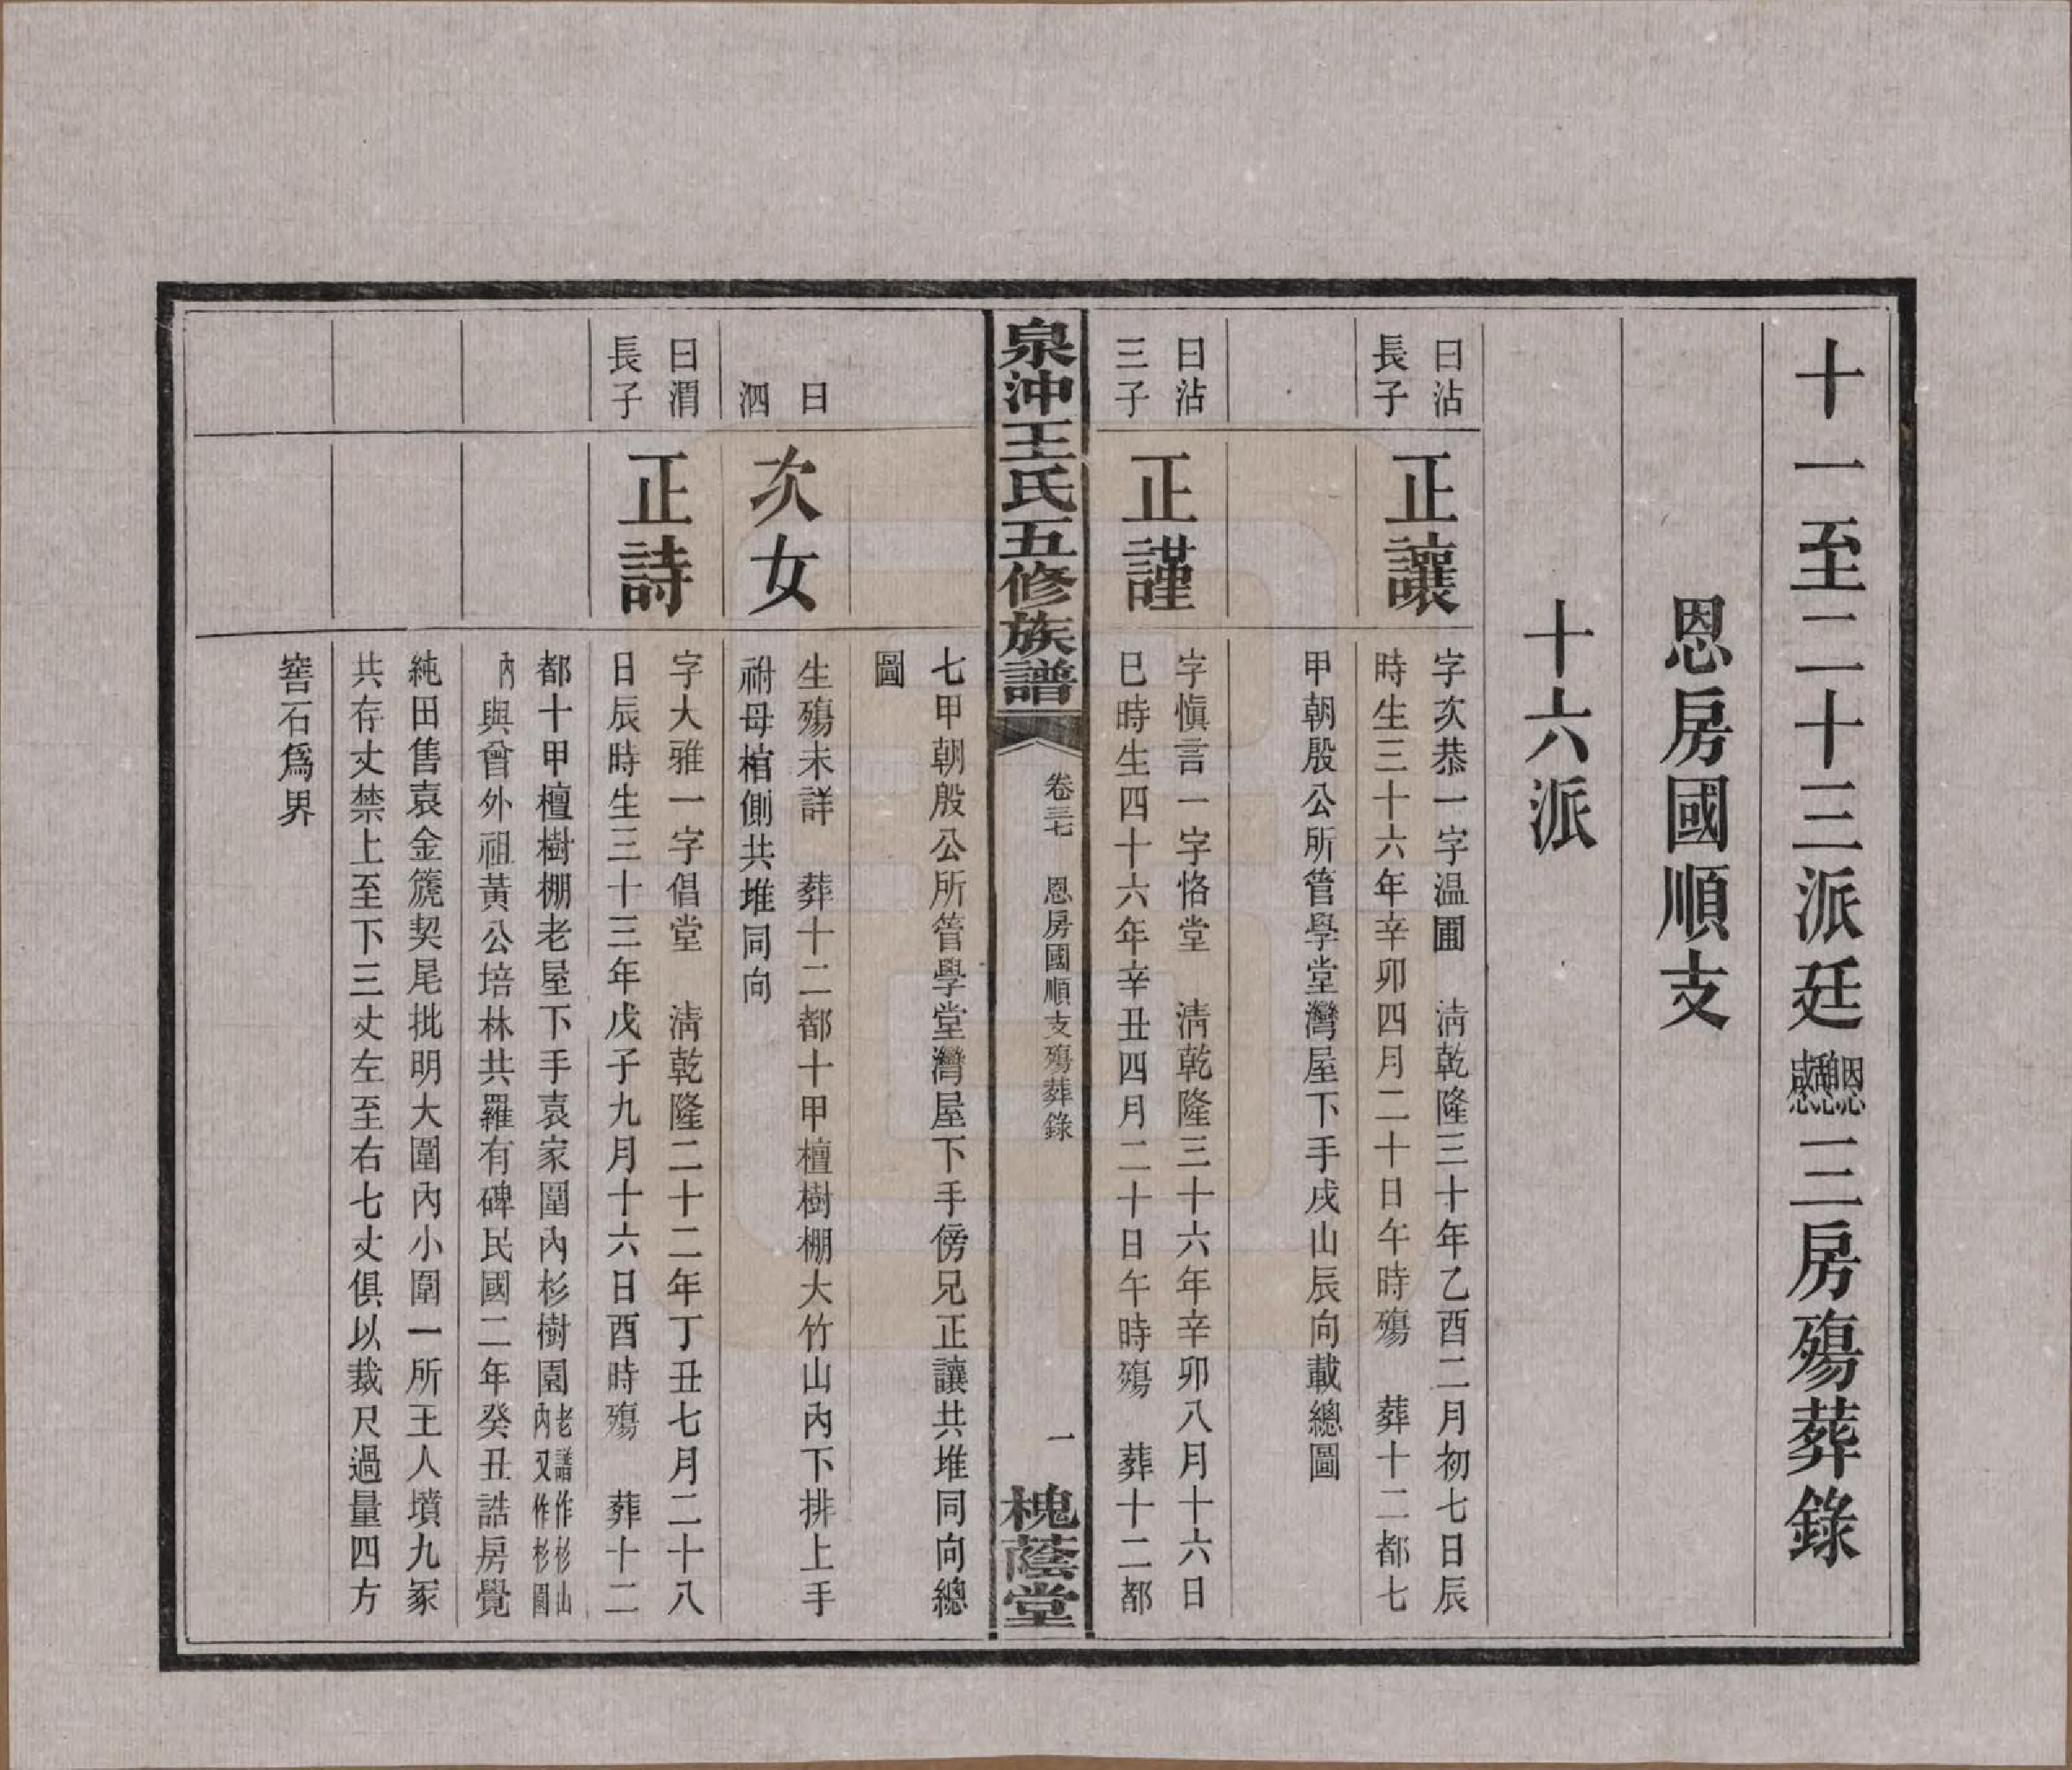 十一至二十三派廷恩憩感三房殤葬錄
恩房國順支
十六派
曰沾
長子
正讓
字次恭一字温圃　淸乾隆三十年乙酉二月初七日辰
時生三十六年辛卯四月二十日午時殤　葬十二都七
甲朝殷公所管學堂灣屋下手戌山辰向載總圖
曰沾
三子
正謹
字愼言一字恪堂　淸乾隆三十六年辛卯八月十六日
巳時生四十六年辛丑四月二十日午時殤　葬十二都
泉沖王氏五修族譜
卷三七　恩房國順支殤葬錄
一
槐蔭堂
七甲朝殷公所管學堂灣屋下手傍兄正讓共堆同向總
圖
曰
泗
次女
生殤未詳　葬十二都十甲檀樹棚大竹山內下排上手
祔母棺側共堆同向
曰渭
長子
正詩
字大雅一字倡堂　淸乾隆二十二年丁丑七月二十八
日辰時生三十三年戊子九月十六日酉時殤　葬十二
都十甲檀樹棚老屋下手袁家圍內杉樹園老譜作杉山
內又作杉園
內與曾外祖黃公培林共羅有碑民國二年癸丑誥房覺
純田售袁金箎契尾批明大圍內小圍一所王人墳九冢
共存丈禁上至下三丈左至右七丈俱以裁尺過量四方
窖石爲界